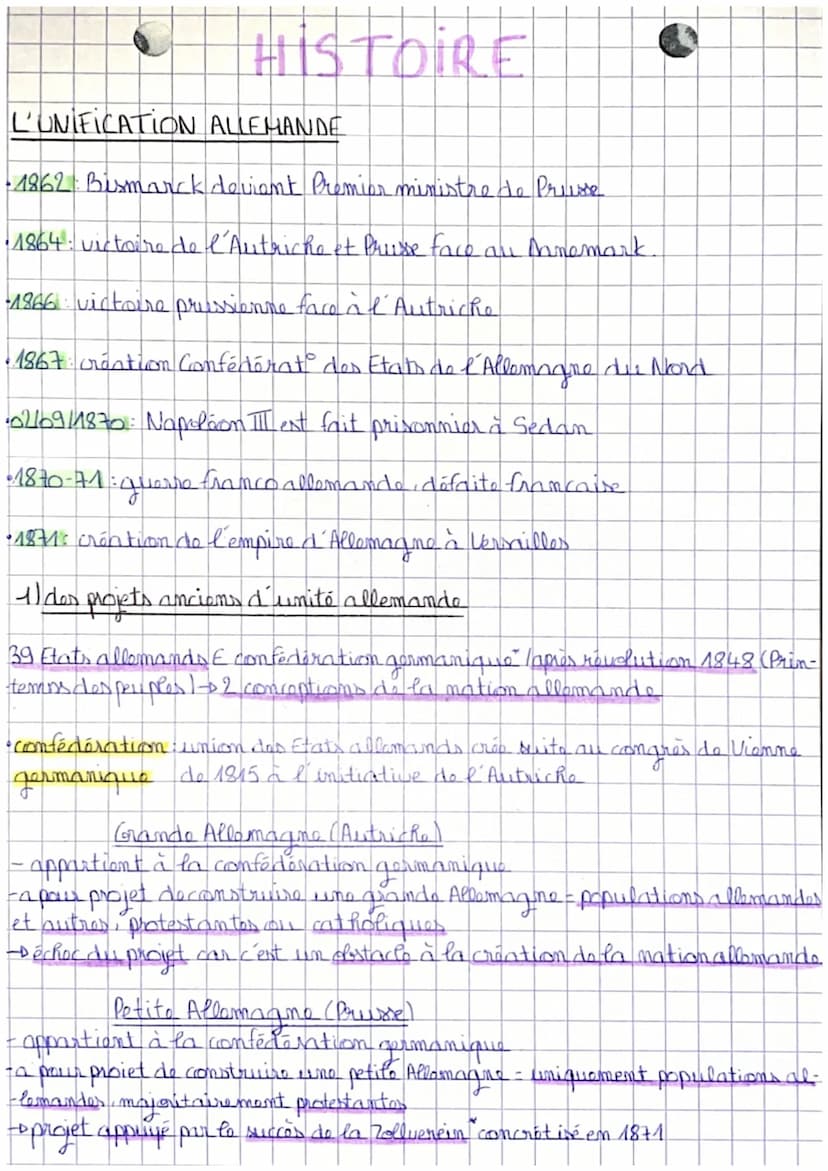 HiSTOiRE
L'UNiFiCATiON ALLEMANDE
• 1862 : Bismarck devient Premier ministre de Prusse
• 1864 : victoire de l'Autriche et Prusse face au Dannemark.
• 1866 : victoire prussienne face à l'Autriche
• 1867 : création Confédérat° des Etats de l'Allemagne du Nord
• 02/09/1870 : Napoléon III est fait prisonnier à Sedan
• 1870-71 : guerre franco allemande, défaite francaise
• 1871 : création de l'empire d'Allemagne à Versailles
1) des projets anciens d'unité allemande
39 Etats allemands ∈ confédération germanique* (après révolution 1848 (Prin-
temps des peuples) → 2 conceptions de la nation allemande
• confédération : union des Etats allemands crée suite au congrès de Vienne
germanique de 1815 à l'initiative de l'Autriche
Grande Allemagne (Autriche)
- appartient à la confédération germanique
- a pour projet de construire une grande Allemagne = populations allemandes
et autres, protestantes ou catholiques
→ échec du projet car c'est un obstacle à la création de la nation allemande
Petite Allemagne (Prusse)
- appartient à la confédération germanique
- a pour projet de construire une petite Allemagne = uniquement populations al-
-lemandes, majoritairement protestantes
→ projet appuyé par le succès de la Zollverein* concrétisé en 1871